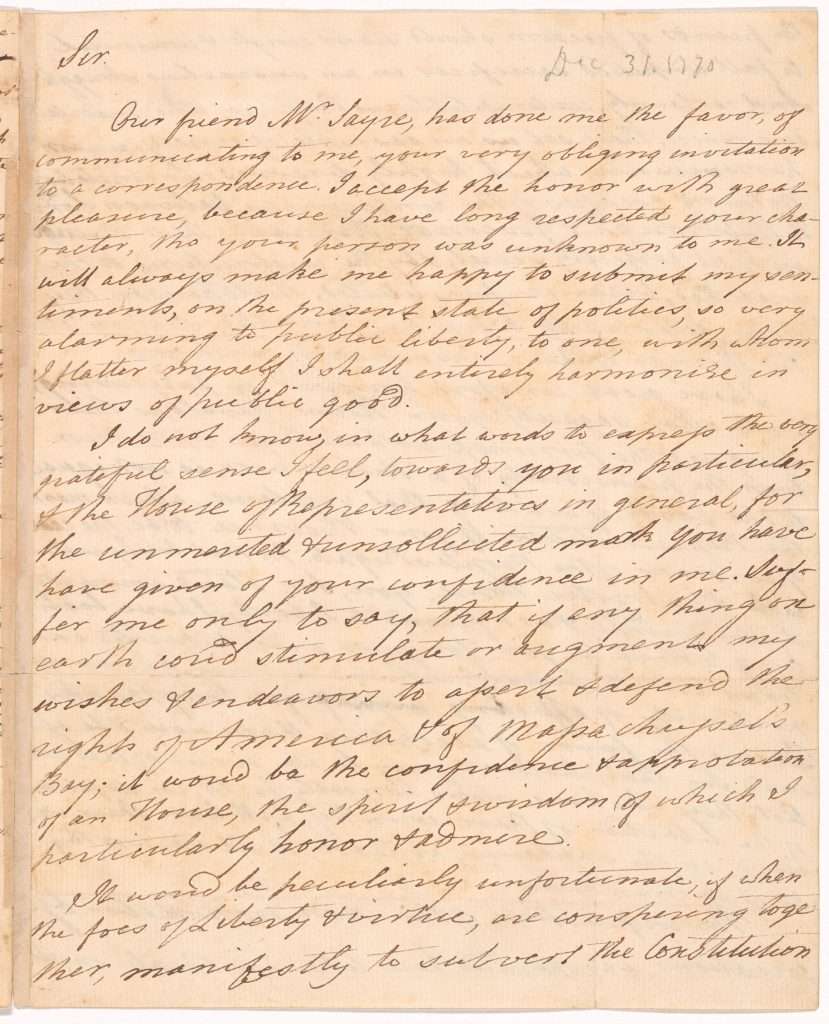 Sir.
Dec 31. 1770
Our friend Mr. Sayre, has done me the favor, of
communicating to me, your very obliging invitation
to a correspondence. I accept the honor with great
pleasure, because I have long respected your cha-
racter, tho your person was unknown to me. It
will always make me happy to submit my sen-
timents, on the present state of politics, so very
alarming to public liberty, to one, with whom
I flatter myself I shall entirely harmonise in
views of public good.
I do not know, in what words to express the very
grateful sense I feel, towards you in particular,
& the House of Representatives in general, for
the unmerited & unsollicited mark you have
have given of your confidence in me. Suf-
fer me only to say, that if any thing on
earth coud stimulate or augment my
wishes & endeavors to assert & defend the
rights of America & of Massachusset's
Bay; it woud be the confidence & approbation
of an House, the spirit & wisdom of which I
particularly honor & admire.
It woud be peculiarly unfortunate, if when
the foes of Liberty & virtue, are conspiring toge
ther, manifestly to subvert the Constitution